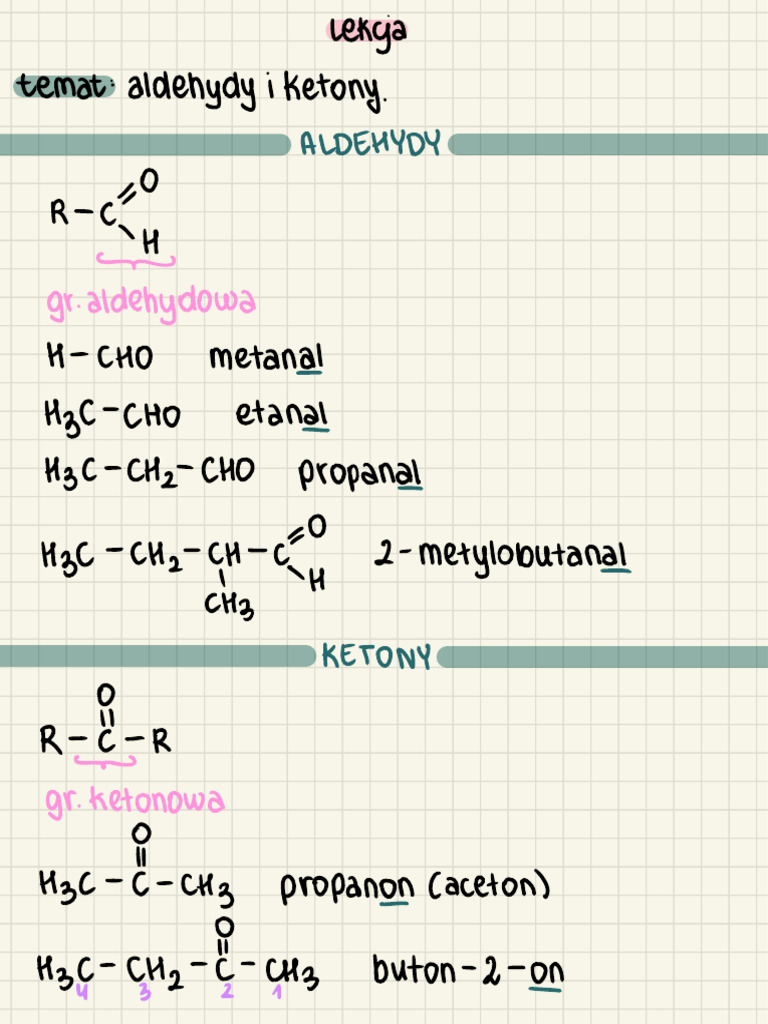 lekcja
temat: aldehydy i ketony.
ALDEHYDY
R-C=O
H
gr. aldehydowa
H-CHO metanal
H₃C-CHO etanal
H₃C-CH₂-CHO propanal
H₃C-CH₂-CH-C=O 2-metylobutanal
H
CH₃
KETONY
O
R-C-R
gr. ketonowa
O
H₃C-C-CH₃ propanon (aceton)
O
H₃C-CH₂-C-CH₃ buton-2-on
4 3 2 1